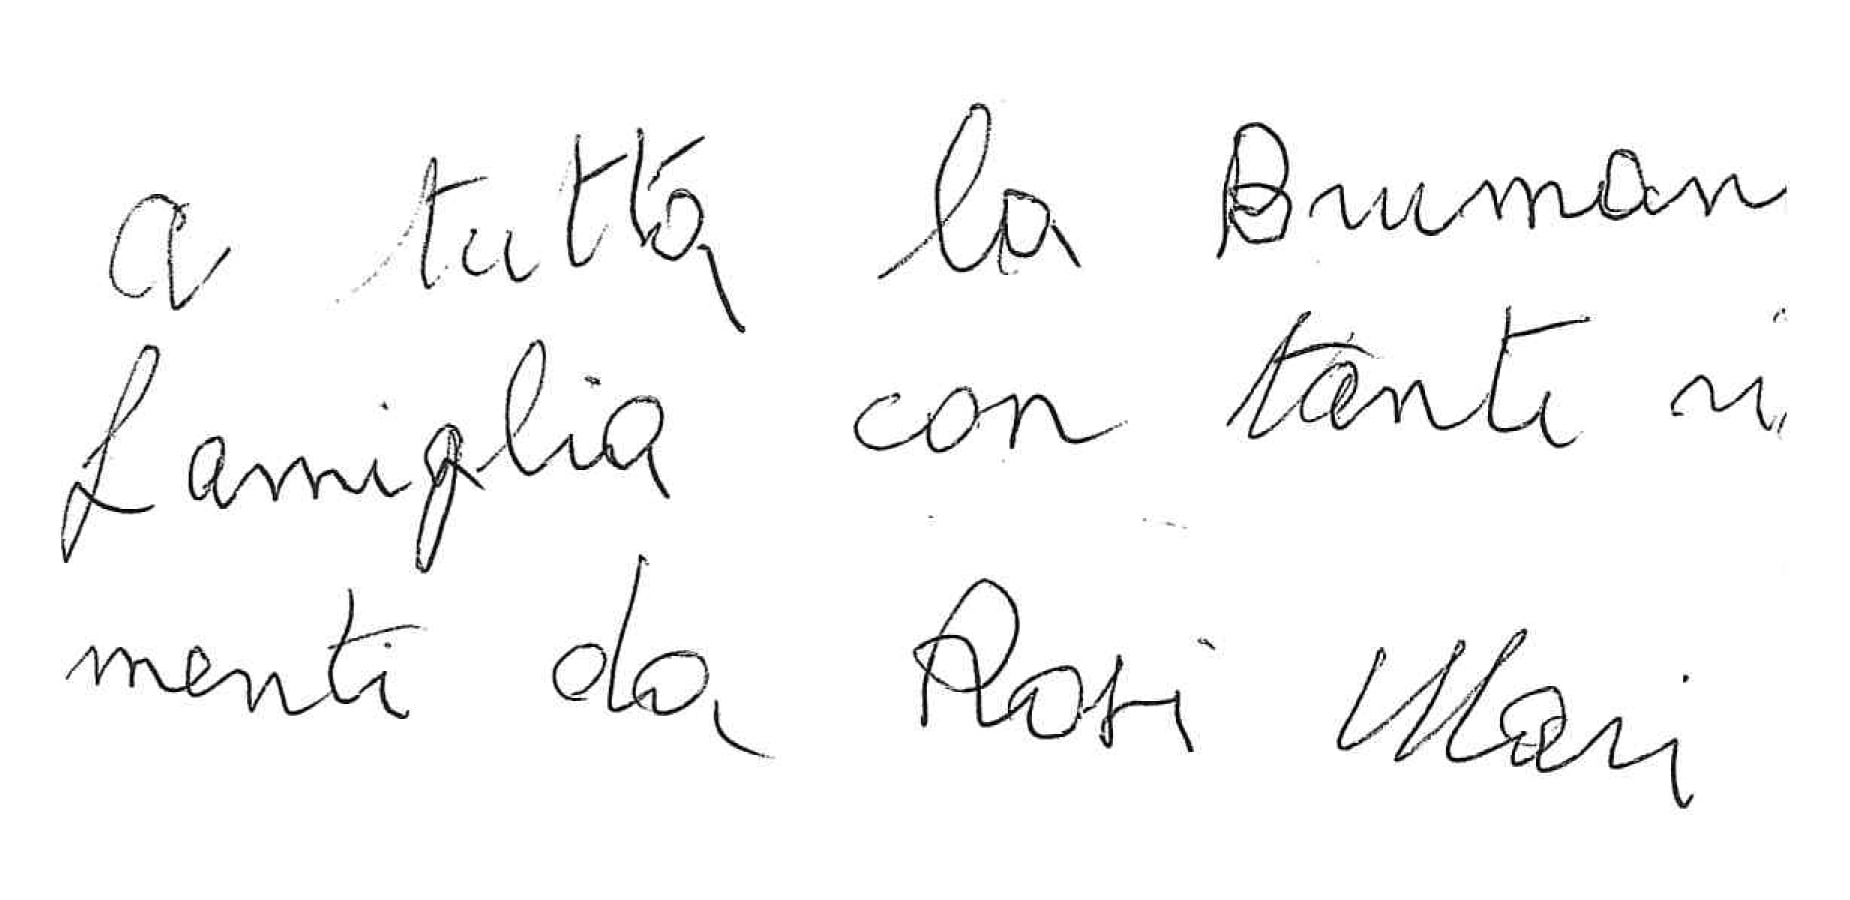 a tutta la Bruman
famiglia con tanti ri
menti da Rosi Mari